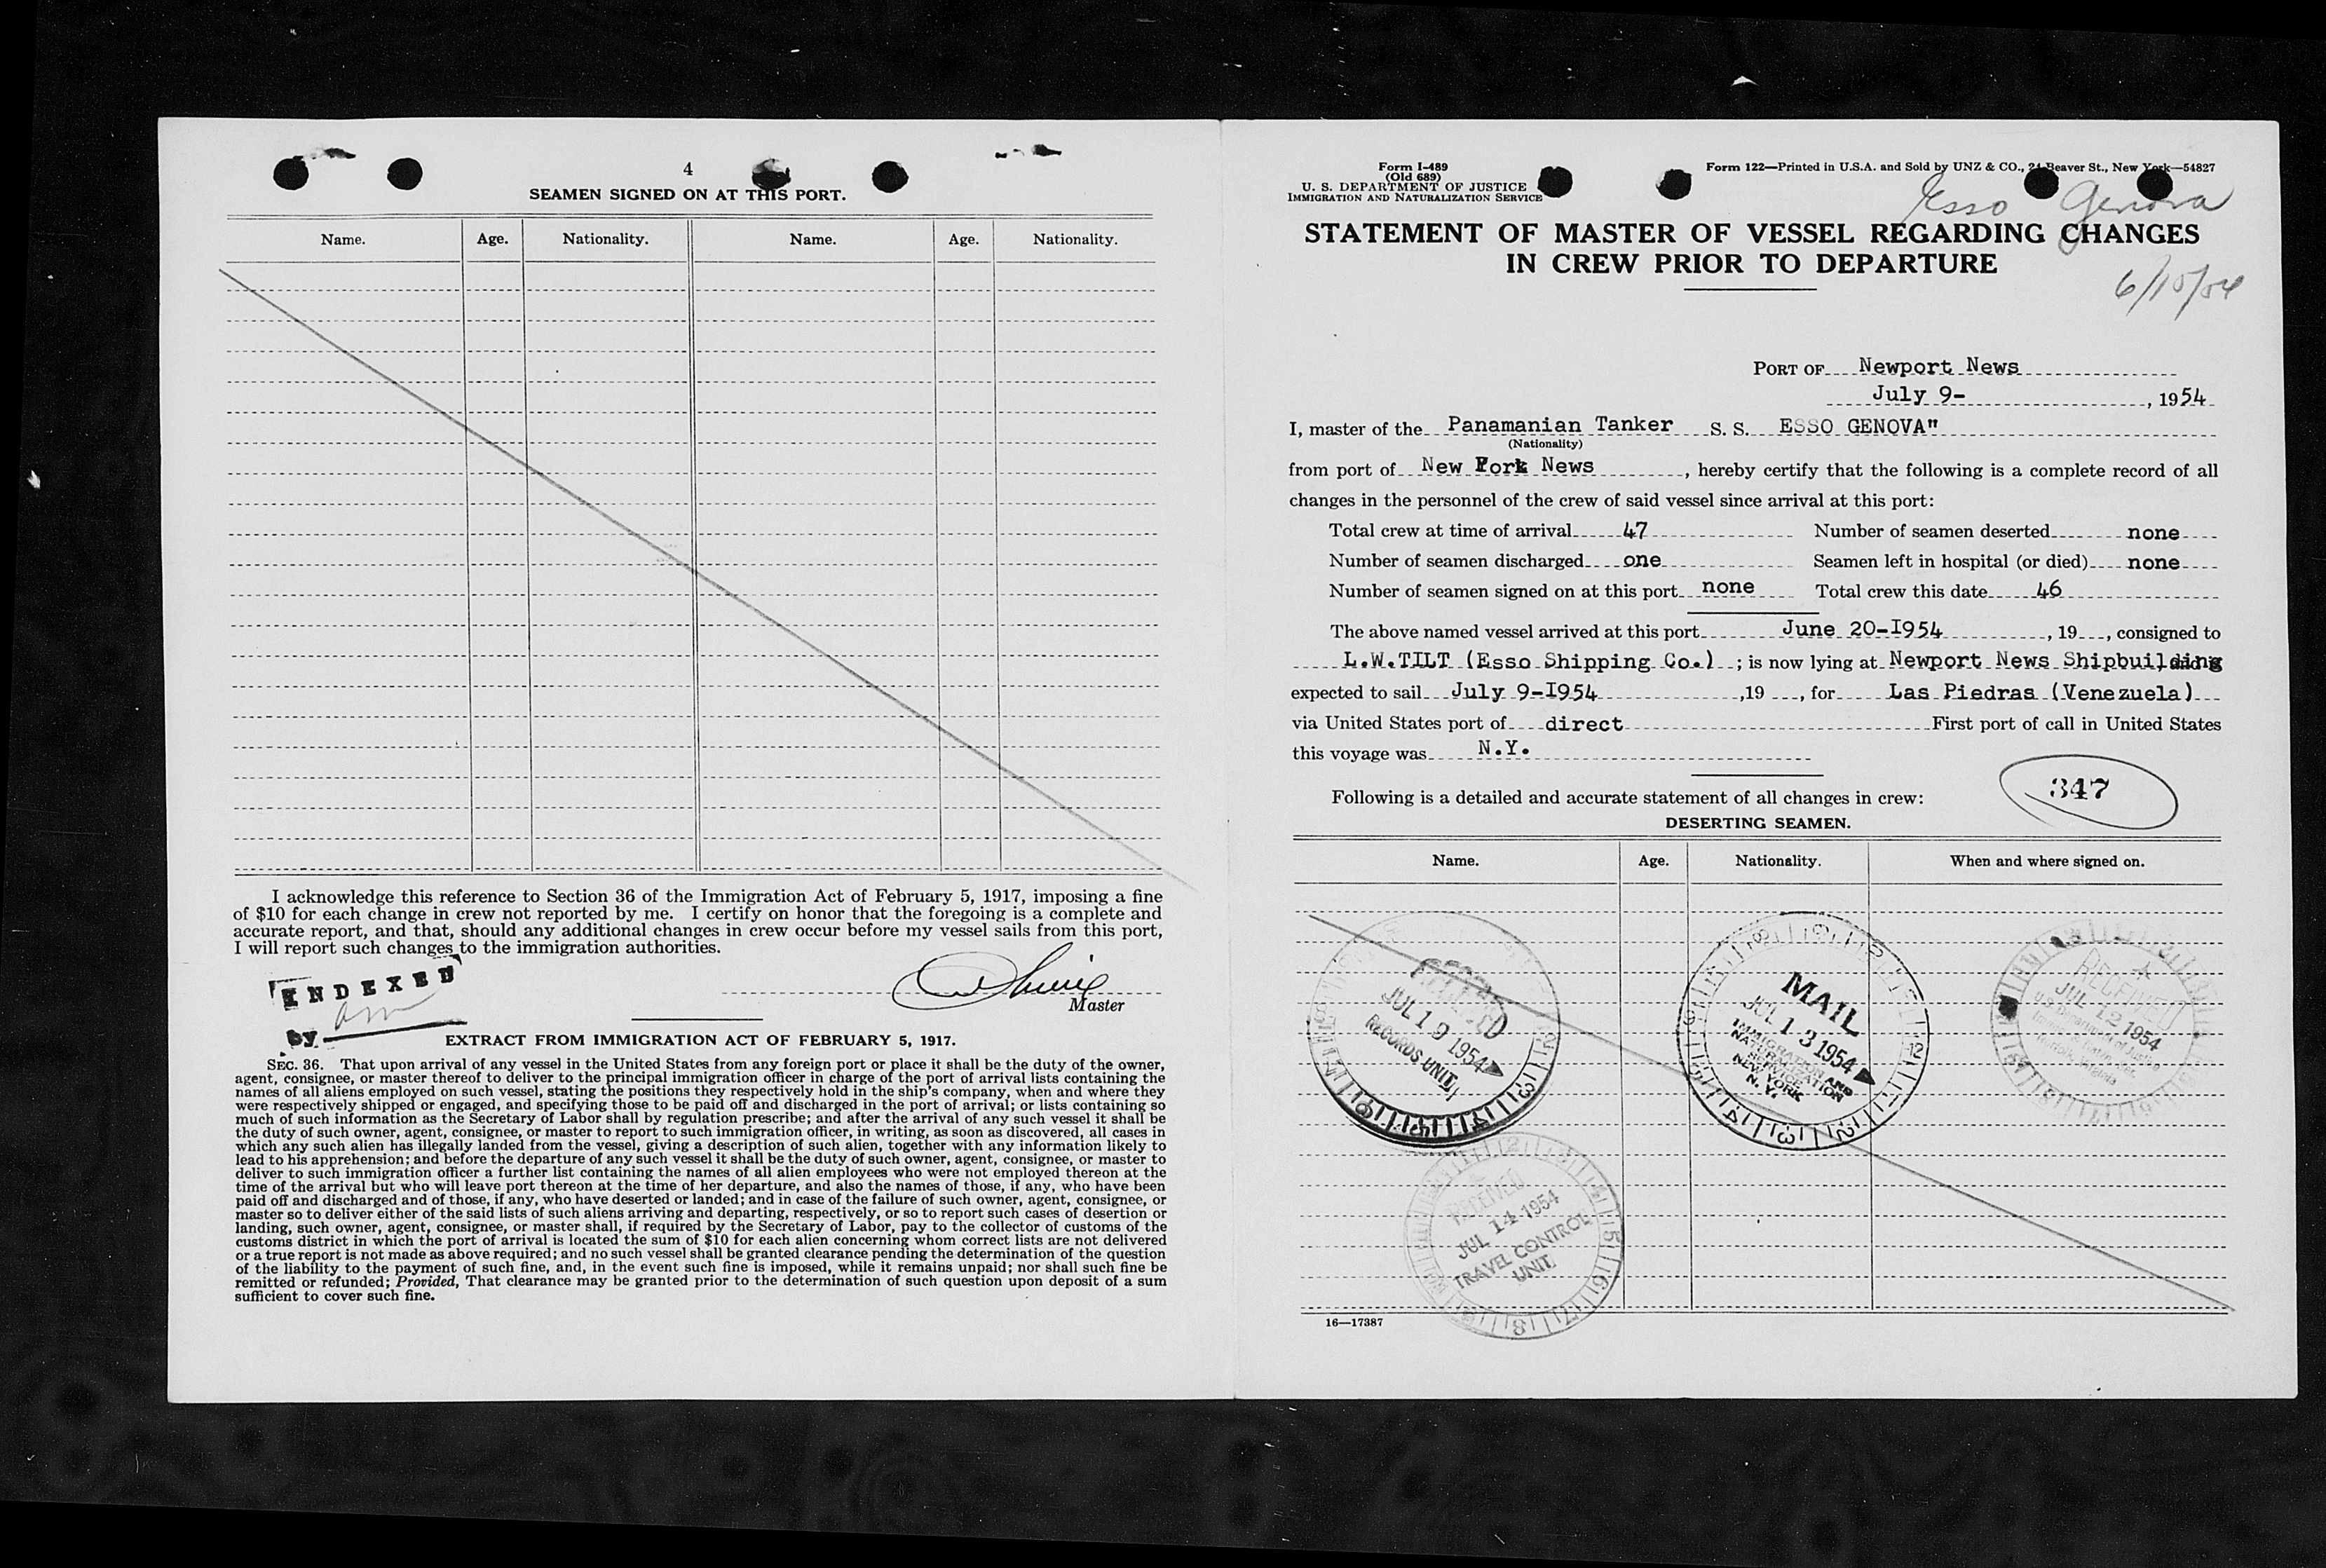 4
SEAMEN SIGNED ON AT THIS PORT.
Name. Age. Nationality. Name. Age. Nationality.
I acknowledge this reference to Section 36 of the Immigration Act of February 5, 1917, imposing a fine
of $10 for each change in crew not reported by me. I certify on honor that the foregoing is a complete and
accurate report, and that, should any additional changes in crew occur before my vessel sails from this port,
I will report such changes to the immigration authorities.
INDEXED
Master
by
EXTRACT FROM IMMIGRATION ACT OF FEBRUARY 5, 1917.
SEC. 36. That upon arrival of any vessel in the United States from any foreign port or place it shall be the duty of the owner,
agent, consignee, or master thereof to deliver to the principal immigration officer in charge of the port of arrival lists containing the
names of all aliens employed on such vessel, stating the positions they respectively hold in the ship's company, when and where they
were respectively shipped or engaged, and specifying those to be paid off and discharged in the port of arrival; or lists containing so
much of such information as the Secretary of Labor shall by regulation prescribe; and after the arrival of any such vessel it shall be
the duty of such owner, agent, consignee, or master to report to such immigration officer, in writing, as soon as discovered, all cases in
which any such alien has illegally landed from the vessel, giving a description of such alien, together with any information likely to
lead to his apprehension; and before the departure of any such vessel it shall be the duty of such owner, agent, consignee, or master to
deliver to such immigration officer a further list containing the names of all alien employees who were not employed thereon at the
time of the arrival but who will leave port thereon at the time of her departure, and also the names of those, if any, who have been
paid off and discharged and of those, if any, who have deserted or landed; and in case of the failure of such owner, agent, consignee, or
master so to deliver either of the said lists of such aliens arriving and departing, respectively, or so to report such cases of desertion or
landing, such owner, agent, consignee, or master shall, if required by the Secretary of Labor, pay to the collector of customs of the
customs district in which the port of arrival is located the sum of $10 for each alien concerning whom correct lists are not delivered
or a true report is not made as above required; and no such vessel shall be granted clearance pending the determination of the question
of the liability to the payment of such fine, and, in the event such fine is imposed, while it remains unpaid; nor shall such fine be
remitted or refunded; Provided, That clearance may be granted prior to the determination of such question upon deposit of a sum
sufficient to cover such fine.
Form I-489
(Old 689)
U. S. DEPARTMENT OF JUSTICE
IMMIGRATION AND NATURALIZATION SERVICE
Form 122—Printed in U.S.A. and Sold by UNZ & CO., 24 Beaver St., New York—54827
Esso Genova
STATEMENT OF MASTER OF VESSEL REGARDING CHANGES
IN CREW PRIOR TO DEPARTURE
6/15/54
PORT OF Newport News
July 9- , 1954
I, master of the Panamanian Tanker S. S. ESSO GENOVA"
(Nationality)
from port of New York News , hereby certify that the following is a complete record of all
changes in the personnel of the crew of said vessel since arrival at this port:
Total crew at time of arrival 47 Number of seamen deserted none
Number of seamen discharged one Seamen left in hospital (or died) none
Number of seamen signed on at this port none Total crew this date 46
The above named vessel arrived at this port June 20-I954 , 19 , consigned to
L.W.TILT (Esso Shipping Co.) ; is now lying at Newport News Shipbuilding
expected to sail July 9-I954 ,19 , for Las Piedras (Venezuela)
via United States port of direct First port of call in United States
this voyage was N.Y.
347
Following is a detailed and accurate statement of all changes in crew:
DESERTING SEAMEN.
Name. Age. Nationality. When and where signed on.
JUL 19 1954
RECORDS UNIT
MAIL
JUL 13 1954
IMMIGRATION AND
NATURALIZATION
SERVICE
NEW YORK
N. Y.
RECEIVED
JUL 12 1954
U.S. Department of Justice
Norfolk, Virginia
RECEIVED
JUL 14 1954
TRAVEL CONTROL
UNIT
16—17387